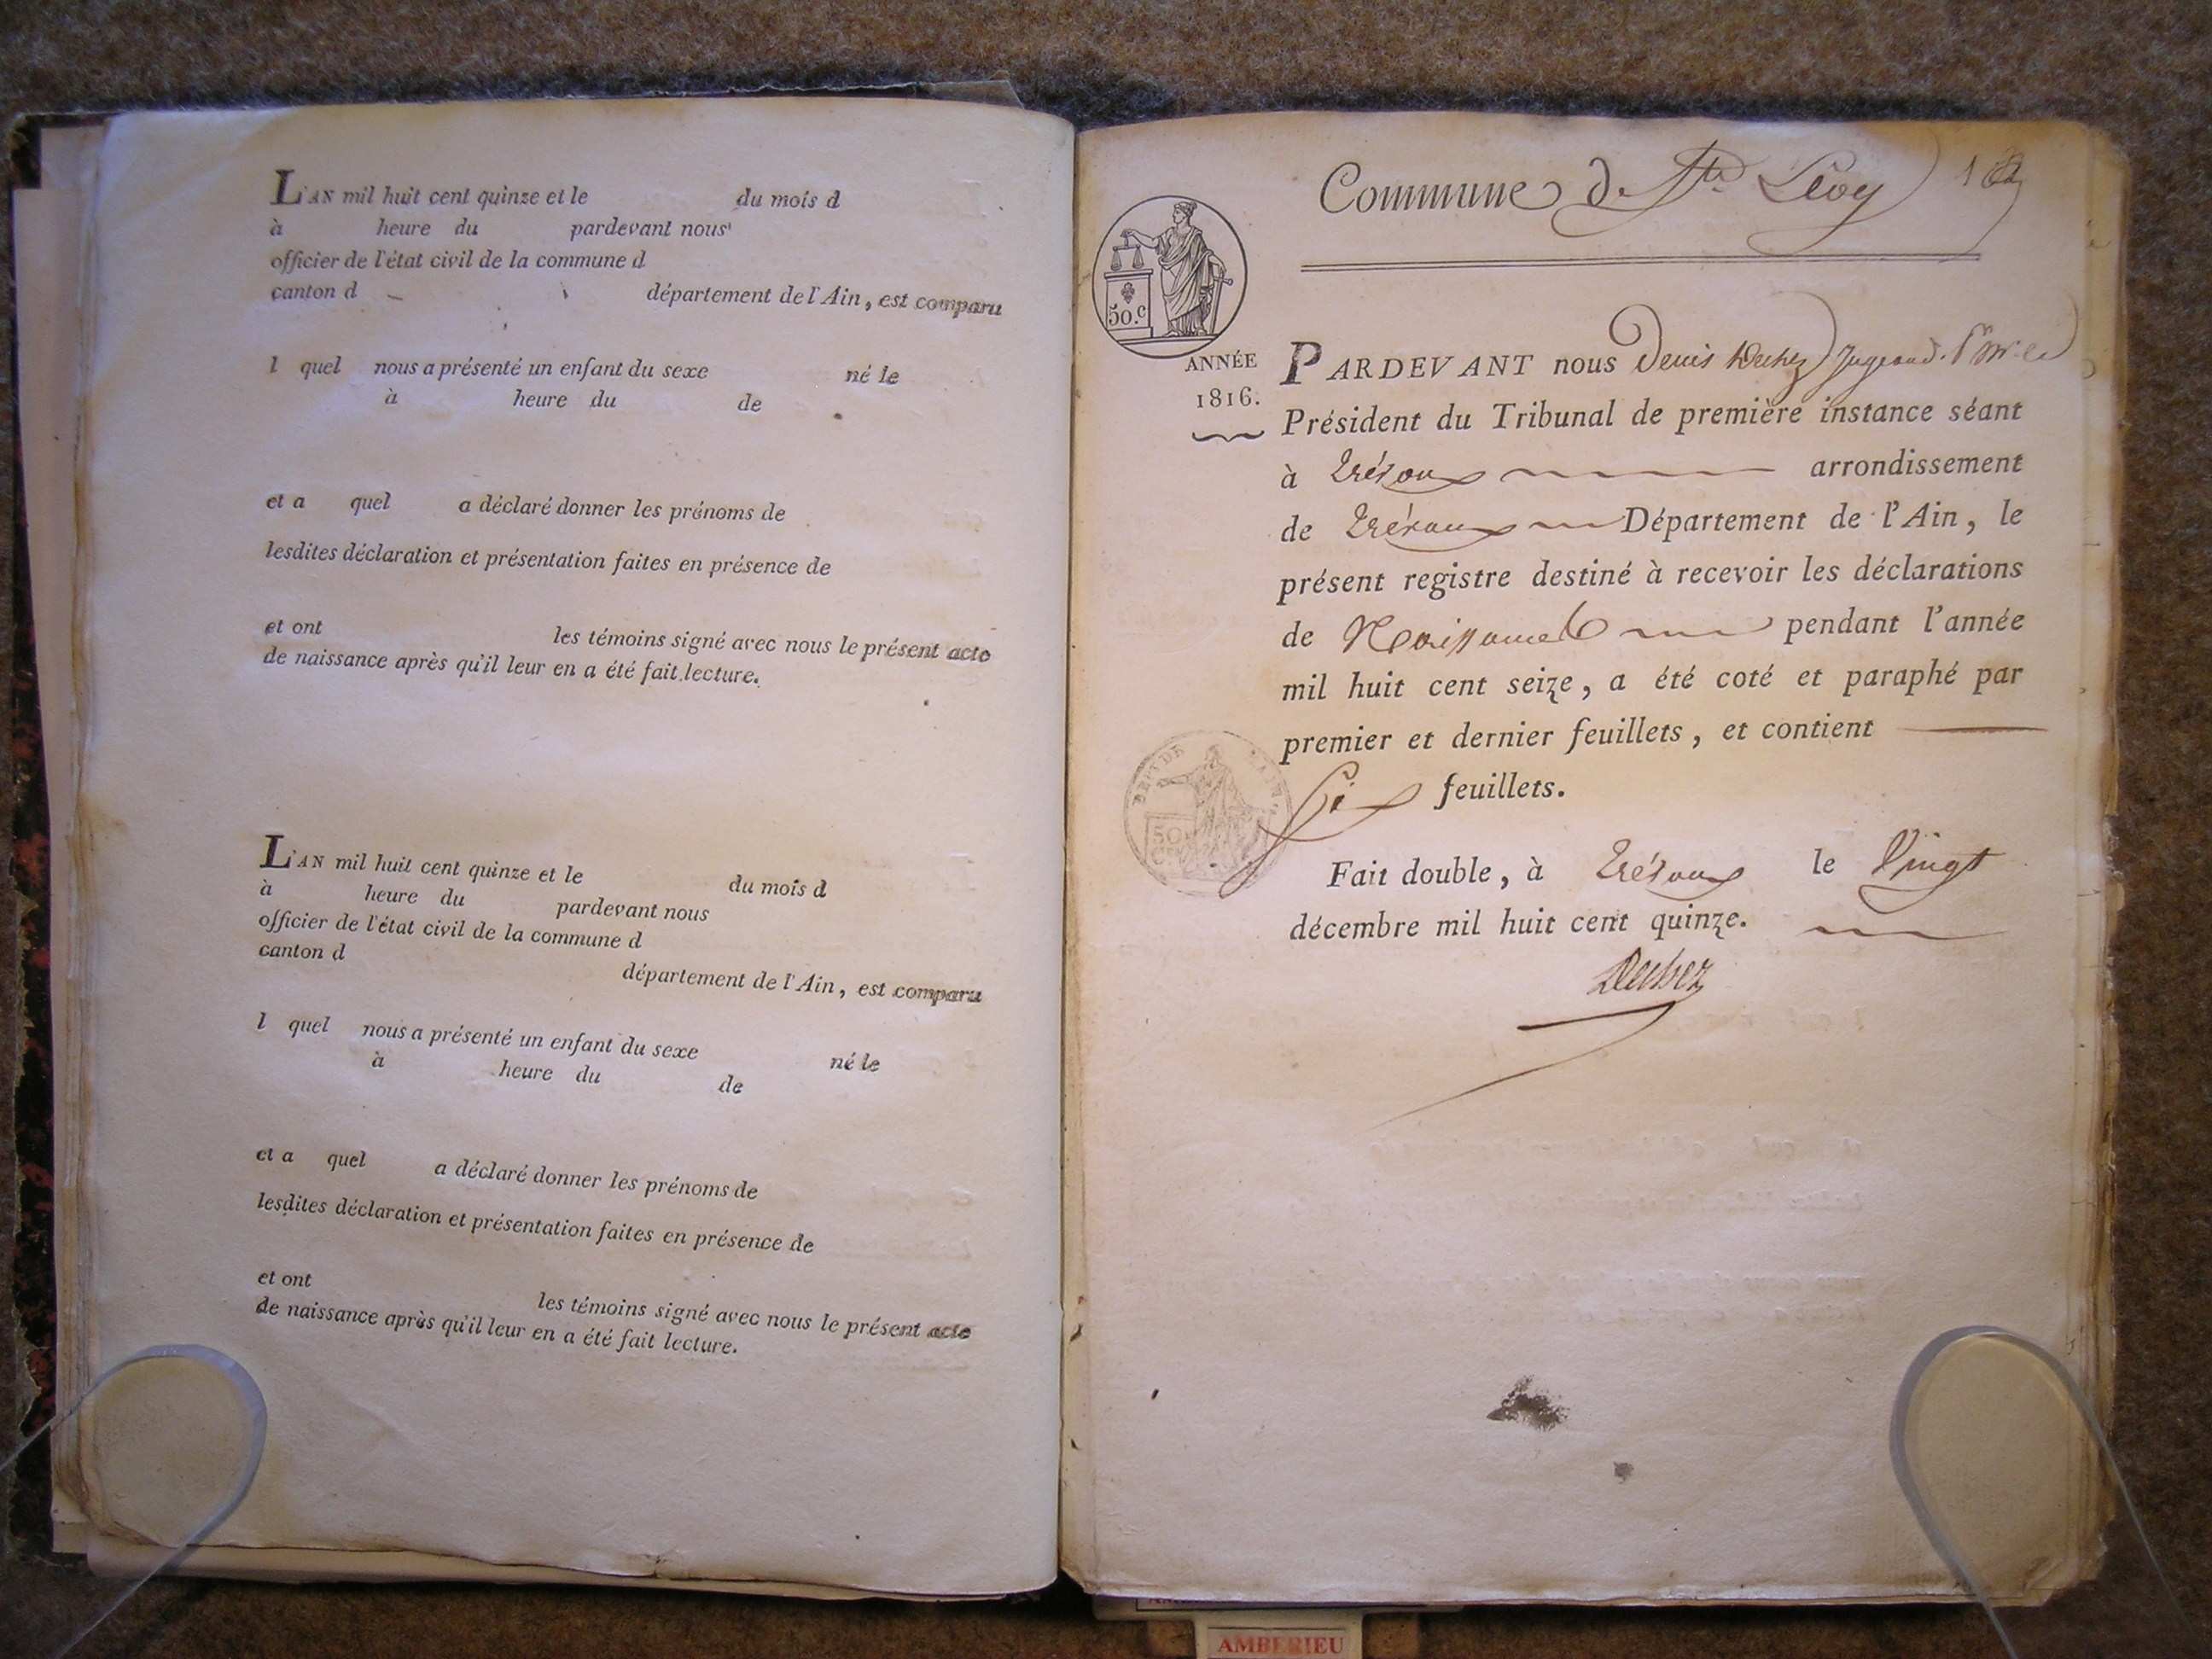 L'AN mil huit cent quinze et le du mois d
à heure du pardevant nous
officier de l'état civil de la commune d
canton d département de l'Ain, est comparu
l quel nous a présenté un enfant du sexe né le
à heure du de
et a quel a déclaré donner les prénoms de
lesdites déclaration et présentation faites en présence de
et ont les témoins signé avec nous le présent acte
de naissance après qu'il leur en a été fait lecture.
L'AN mil huit cent quinze et le du mois d
à heure du pardevant nous
officier de l'état civil de la commune d
canton d département de l'Ain, est comparu
l quel nous a présenté un enfant du sexe né le
à heure du de
et a quel a déclaré donner les prénoms de
lesdites déclaration et présentation faites en présence de
et ont les témoins signé avec nous le présent acte
de naissance après qu'il leur en a été fait lecture.
Commune de Ste
50.c
ANNÉE
1816.
PARDEVANT nous Denis
Président du Tribunal de première instance séant
à Trévoux arrondissement
de Trévoux Département de l'Ain, le
présent registre destiné à recevoir les déclarations
de Naissance pendant l'année
mil huit cent seize, a été coté et paraphé par
premier et dernier feuillets, et contient
Six feuillets.
DEPT DE L'AIN
50
Fait double, à Trévoux le Vingt
décembre mil huit cent quinze.
AMBERIEU